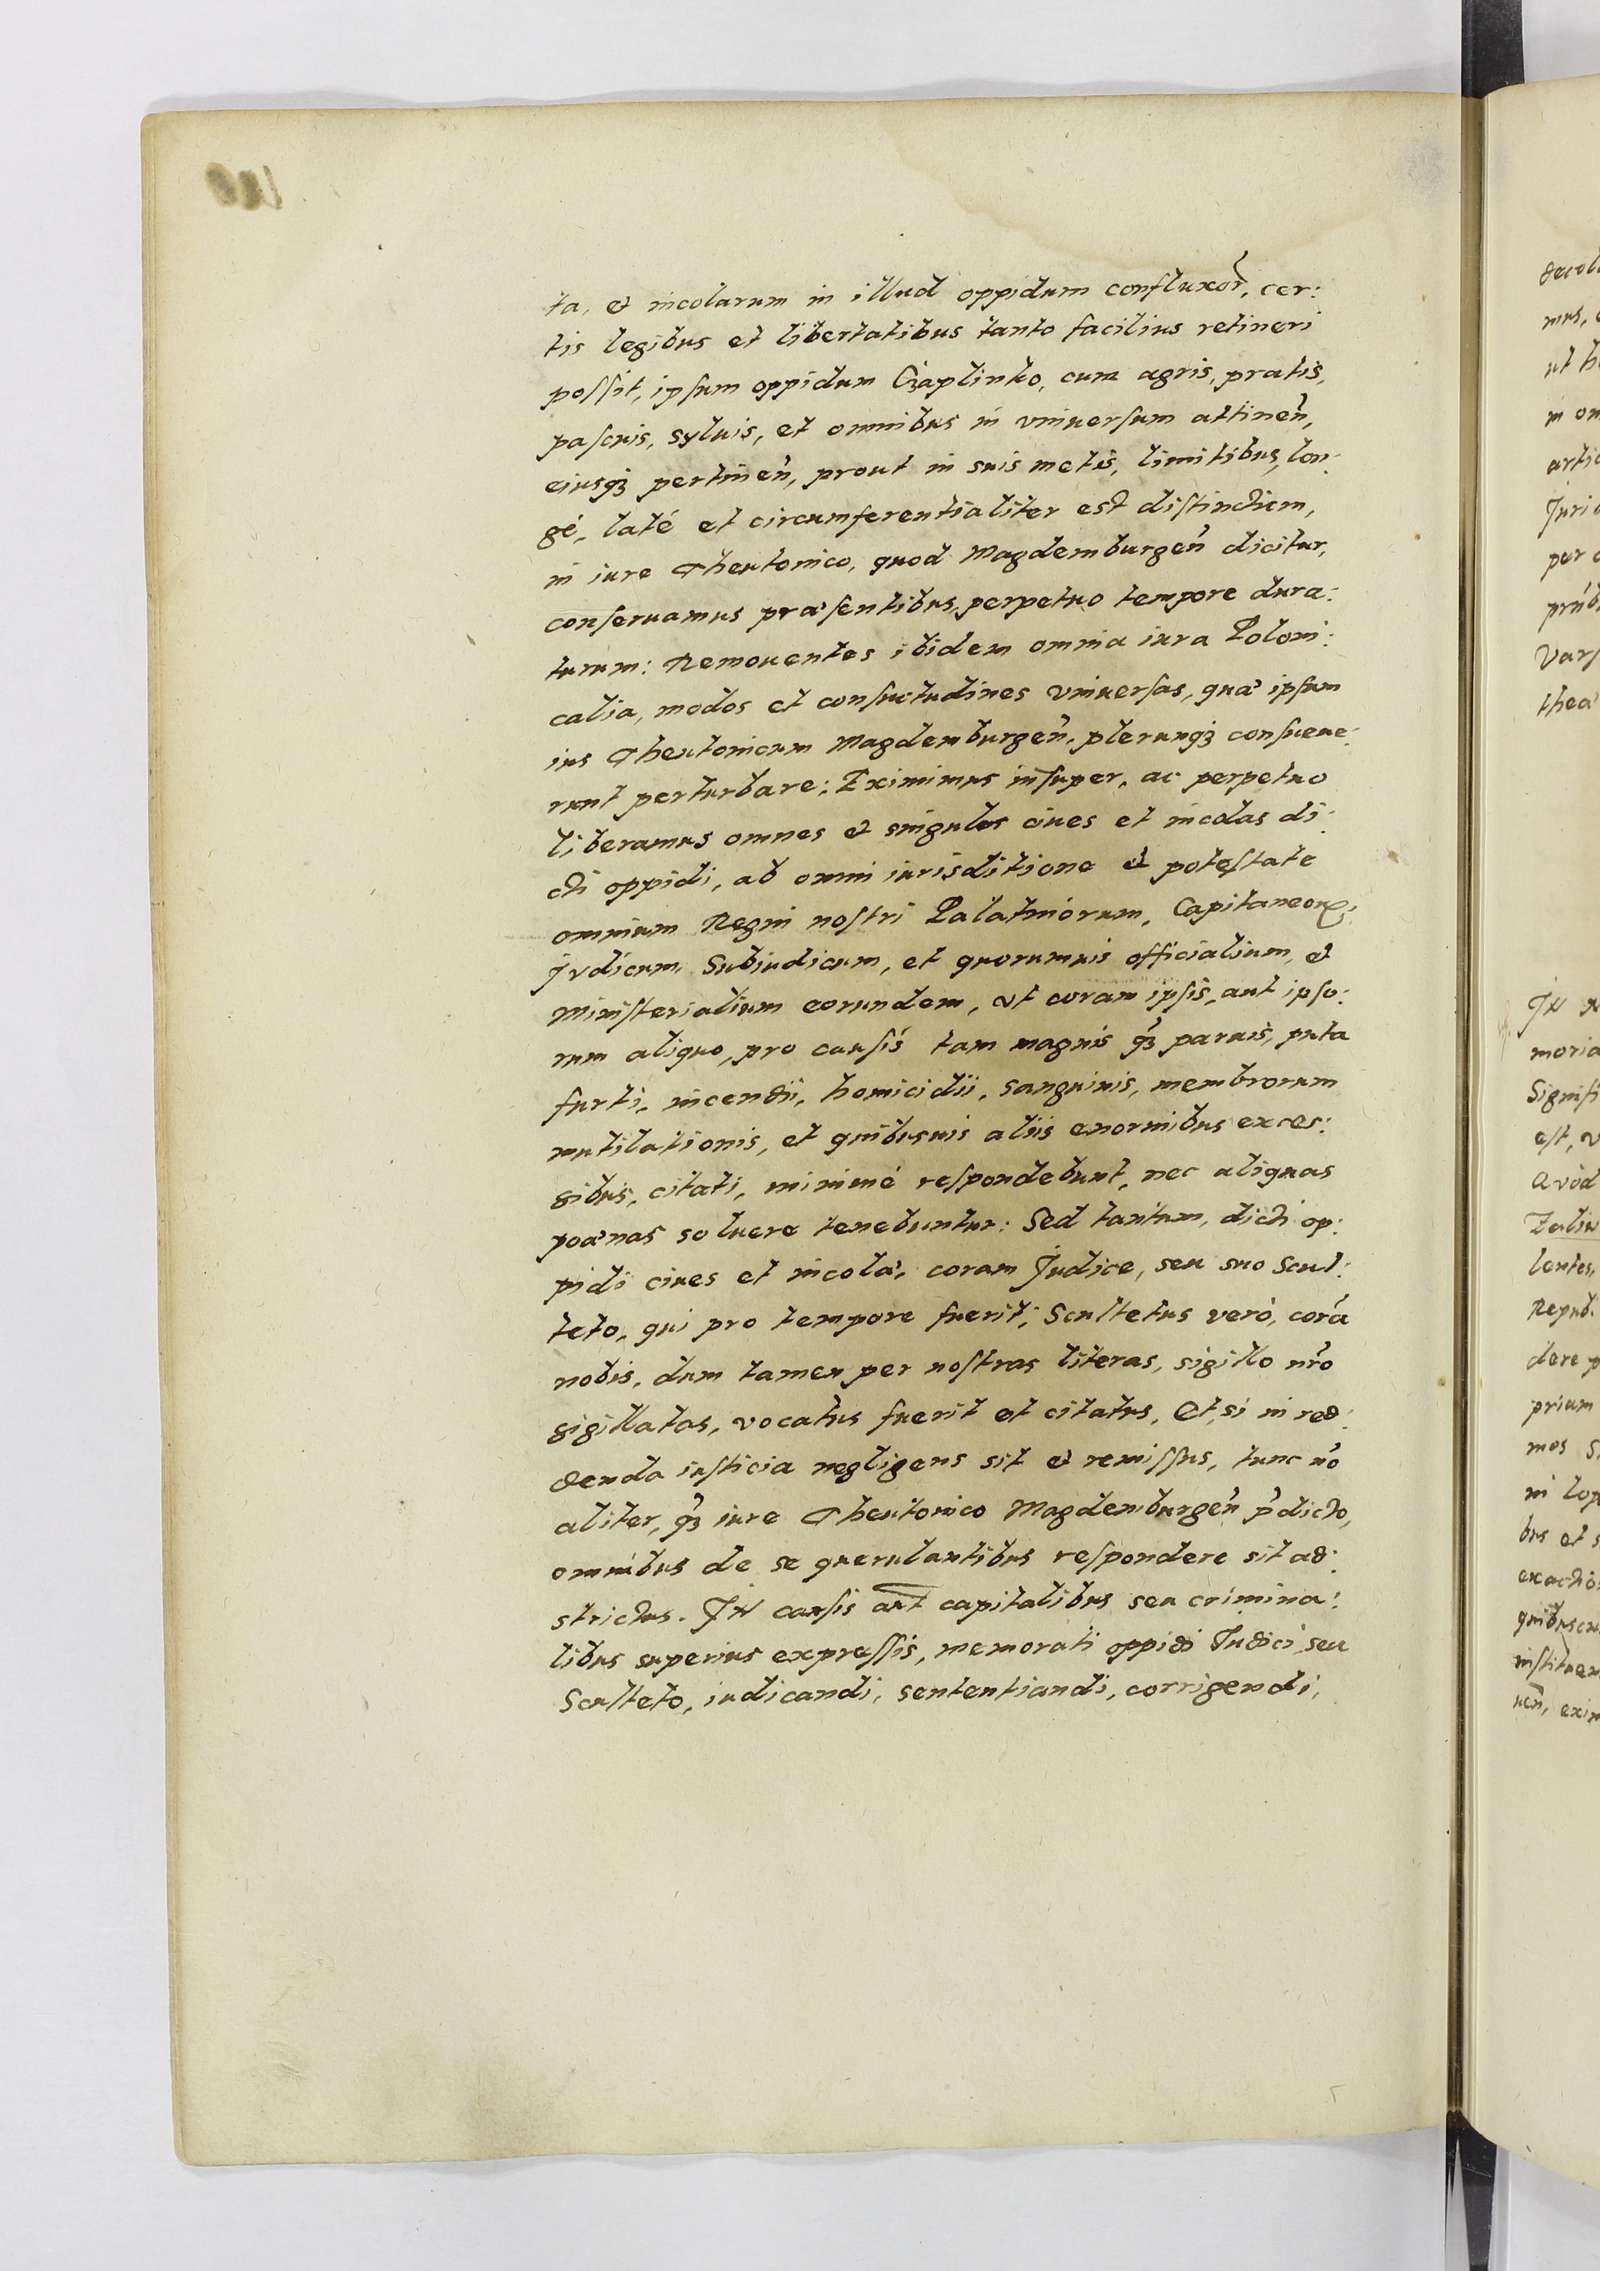 ta, et incolarum in illud oppidum confluxor̃, cer:
tis legibus et libertatibus tanto facilius retineri
poſſit, ipſum oppidum Czaplinko, cum agris, pratis,
paſcuis, syluis, et omnibus in vniuerſum attineñ,
eiusqꝫ pertineñ, prout in suis metis, limitibus, lon:
gé, laté et circumferentialiter est diſtinctum,
in iure Theutonico, quod Magdemburgeñ dicitur,
conſeruamus præſentibus, perpetuo tempore dura:
turum: Remouentes ibidem omnia iura Poloni:
calia, modos et conſuetudines vniuerſas, quæ ipſum
ius Theutonicum Magdemburgeñ, plerunqꝫ conſueue:
runt perturbare; Eximimus inſuper, ac perpetuo
liberamus omnes et singulos ciues et incolas di:
cti oppidi, ab omni iurisditione et poteſtate
omnium Regni noſtri Palatinorum, Capitaneorꝝ,
Jvdicum, Subiudicum, et quorumuis officialium, et
Miniſterialium eorundem, vt coram ipſis, aut ipſo:
rum aliquo, pro cauſis tam magnis qꝫ̃ paruis, puta
furti, incendii, homicidii, sanguinis, membrorum
mutilationis, et quibusuis aliis enormibus exces:
sibus, citati, minimé reſpondebunt, nec aliquas
pœnas soluere tenebuntur: Sed tantum, dicti op:
pidi ciues et incolæ, coram Judice, seu suo Scul:
teto, qui pro tempore fuerit; Scultetus veró, corã
nobis, dum tamen per noſtras literas, sigillo nr̃o
sigillatas, vocatus fuerit et citatus, Et, si in red:
denda iuſticia negligens sit et remiſſus, tunc nõ
aliter, qꝫ̃ iure Theutonico Magdemburgeñ p̃dicto,
omnibus de se querulantibus reſpondere sit ad:
strictus. JN cauſis aut̃ capitalibus seu crimina:
libus superius expreſſis, memorati oppidi Judici, seu
Sculteto, iudicandi, sententiandi, corrigendi,